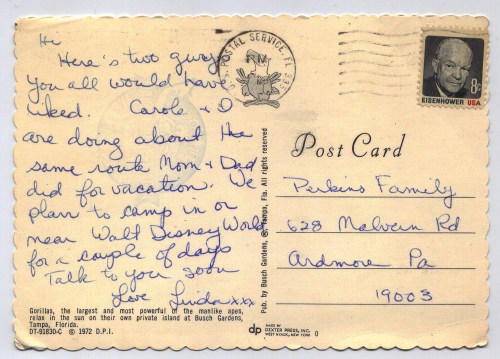 Hi
Here's two guys
you all would have
liked. Carole + I
are doing about the
same route Mom + Dad
did for vacation. We
plan to camp in or
near Walt Disney World
for a couple of days
Talk to you soon
Love Linda xxx
Gorillas, the largest and most powerful of the manlike apes,
relax in the sun on their own private island at Busch Gardens,
Tampa, Florida.
DT-91830-C © 1972 D.P.I.
Pub. by Busch Gardens, ® Tampa, Fla. All rights reserved
dp MADE BY
DEXTER PRESS, INC.
WEST NYACK, NEW YORK 0
U.S. POSTAL SERVICE, FL 335
PM
8¢
EISENHOWER USA
Post Card
Perkins Family
628 Malvern Rd
Ardmore Pa
19003